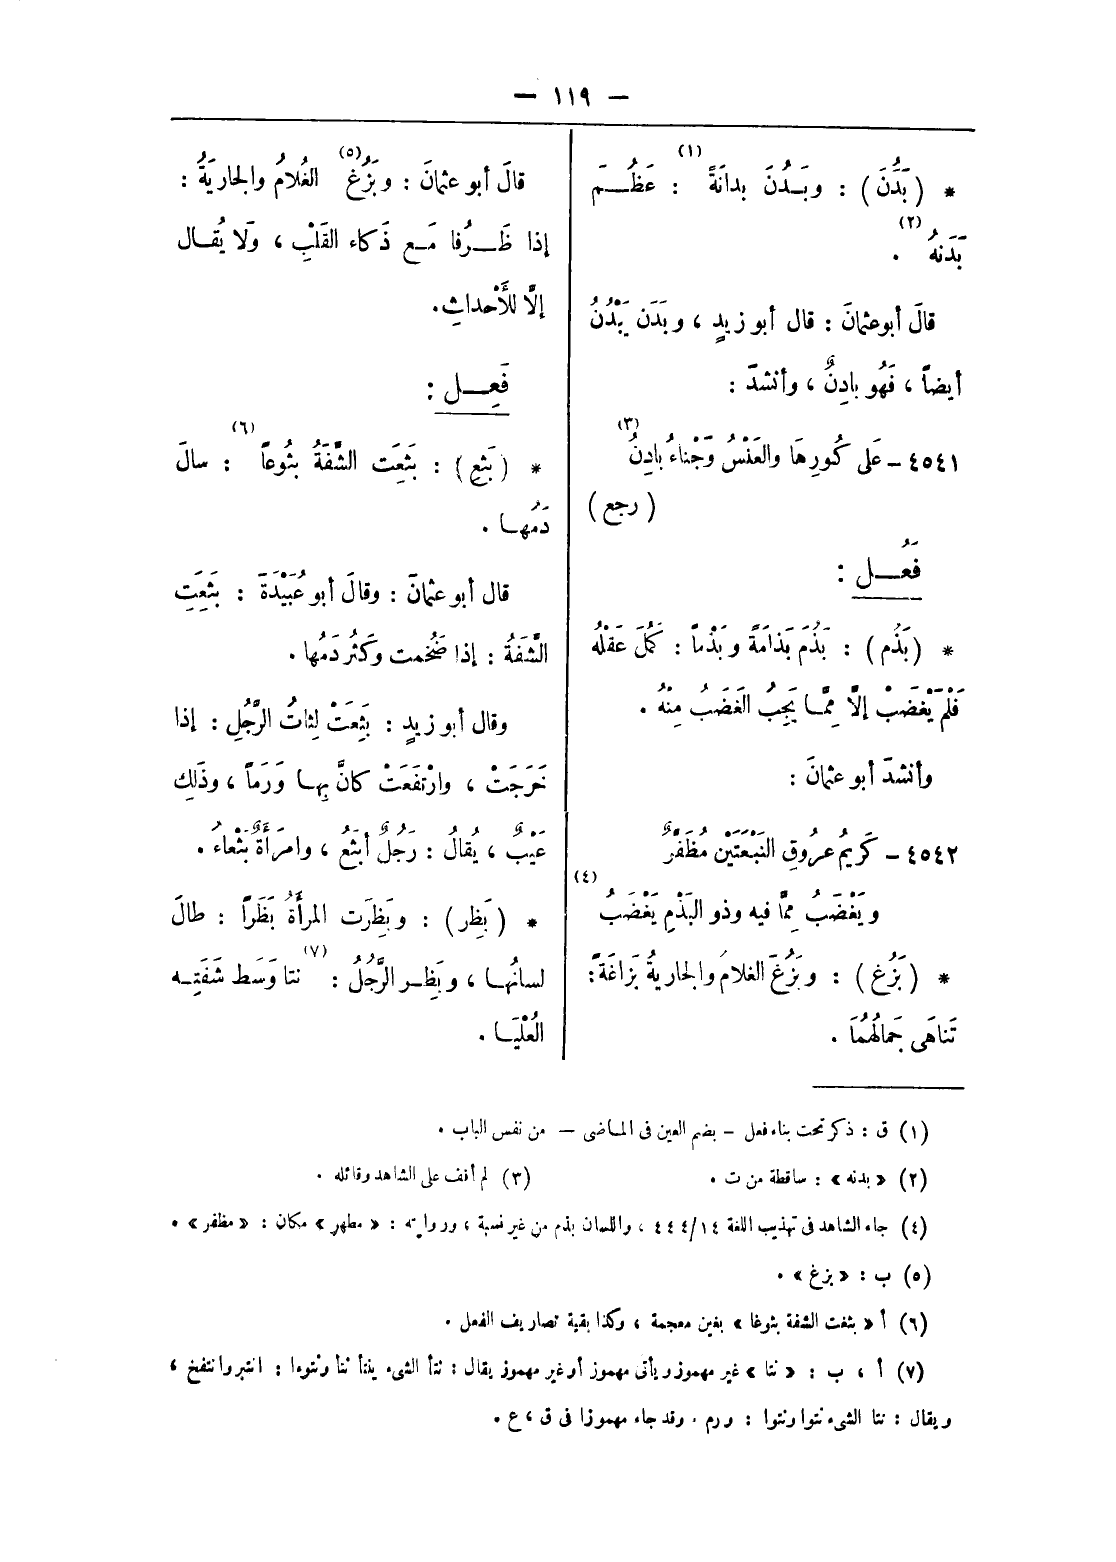 — ١١٩ —
* ( بَدُنَ ) : وبَـدُنَ بدانَةً (١) : عَظُـــمَ
بَدَنهُ (٢) .
قالَ أبو عثمانَ : قال أبو زيدٍ ، وبَدَن يَبْدُنُ
أيضاً ، فَهُو بادِنٌ ، وأنشدَ :
٤٥٤١ – عَلى كُورِهَا والعَنْسُ وَجْناءُ بادِنُ (٣)
( رجع )
فَعُـــل :
* ( بَذُم ) : بَذُمَ بَذامَةً وبَذْماً : كَمُلَ عَقْلهُ
فَلَمْ يَغْضَبْ إلَّا مِمَّـا يَجِبُ الغَضَبُ مِنْهُ .
وأنشدَ أبو عثمانَ :
٤٥٤٢ – كَرِيمُ عروُقِ النَبْعَتَيْن مُظَفَّرٌ
ويَغْضَبُ مِمَّا فيه وذو البَذْمِ يَغْضَبُ (٤)
* ( بَزُغ ) : وبَزُغَ الغلامُ والجاريةُ بَزاغَةً :
تَناهَى جَمالُهُمَا .
قالَ أبو عثمانَ : وبَزُغ (٥) الغُلامُ والجاريَةُ :
إذا ظَــرُفا مَـع ذَكاء القَلْبِ ، ولَا يُقـال
إلَّا للأَحْداثِ.
فَعِـــل :
* ( بَثِع ) : بَثِعَت الشَّفَةُ بثُوعاً (٦) : سالَ
دَمُهـا .
قال أبو عثمانَ : وقالَ أبو عُبَيْدَةَ : بَثِعَتِ
الشَّفَةُ : إذا ضَخُمت وكَثُر دَمُها .
وقال أبو زيدٍ : بَثِعَتْ لِثاتُ الرَّجُلِ : إذا
خَرَجَتْ ، وارْتفَعَتْ كانَّ بِهـا وَرَماً ، وذَلِك
عَيْبٌ ، يُقالُ : رَجُلٌ أبثَعُ ، وامرَأةٌ بَثْعاءُ .
* ( بَظِر ) : وبَظِرَت المرأَةُ بَظَراً : طالَ
لسانُهـا ، وبَظِـر الرَّجُلُ : نتا (٧) وَسَط شَفَتِـه
العُلْيَـا .
(١) ق : ذكر تحت بناء فعل – بضم العين فى المـاضى – من نفس الباب .
(٢) « بدنه » : ساقطة من ت .
(٣) لم أقف على الشاهد وقائله .
(٤) جاء الشاهد فى تهذيب اللغة ٤٤٤/١٤ ، واللسان بذم من غير نسبة ، وروايته : « مطهر » مكان : « مظفر » .
(٥) ب : « بزغ » .
(٦) أ « بثغت الشفة بثوغا » بغين معجمة ، وكذا بقية تصاريف الفعل .
(٧) أ ، ب : « نتا » غير مهموز ويأتى مهموز أو غير مهموز يقال : نتأ الشىء ينتأ نتأ ونتوءا : انتبر وانتفخ ،
ويقال : نتا الشىء نتوا ونتوا : ورم . وقد جاء مهموزا فى ق ، ع .